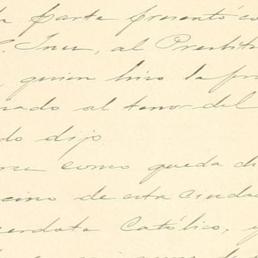 la parte presentó co
Inez, al Presbít
quien hizo la pro
nado al tenor del
do dijo
como queda di
cino de esta ciudad
cerdote Católico, y